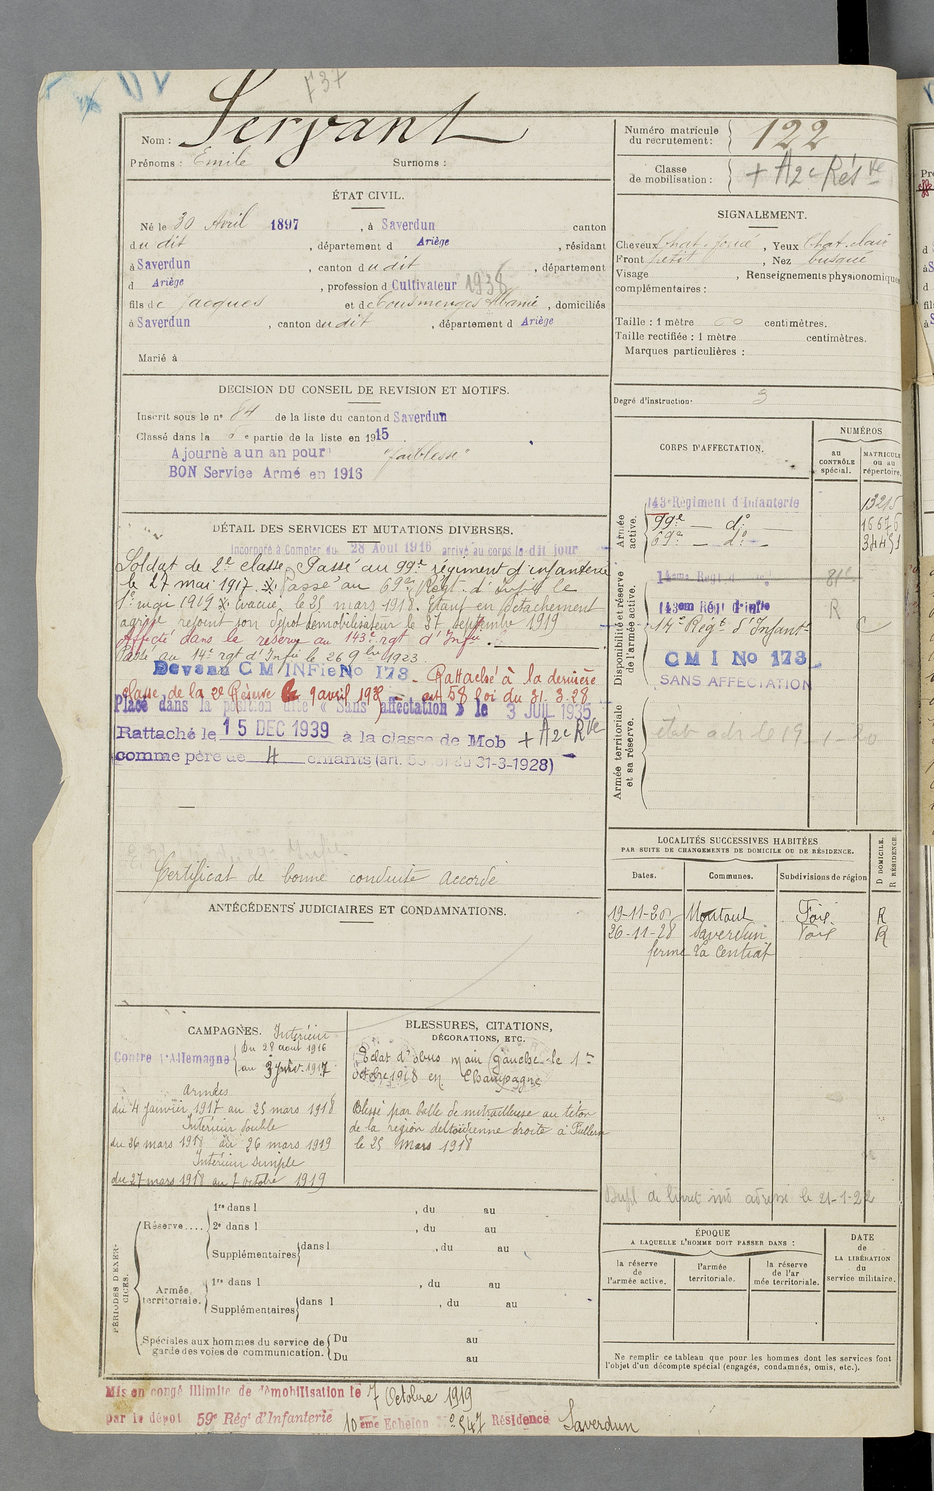 F 37
Nom : Servant
Prénoms : Emile Surnoms :
Numéro matricule du recrutement : 122
Classe de mobilisation : + A 2e Rés ve
ÉTAT CIVIL.
Né le 30 Avril 1897, à Saverdun canton
du dit, département d Ariège, résidant
à Saverdun, canton du dit, département
d Ariège, profession d Cultivateur 1938
fils de Jacques et de Marie, domiciliés
à Saverdun, canton du dit, département d Ariège
Marié à
SIGNALEMENT.
Cheveux Chat. foncé, Yeux Chat. clair
Front petit, Nez busqué
Visage, Renseignements physionomiques
complémentaires :
Taille : 1 mètre 60 centimètres.
Taille rectifiée : 1 mètre centimètres.
Marques particulières :
Degré d'instruction : 3
DÉCISION DU CONSEIL DE REVISION ET MOTIFS.
Inscrit sous le n° 87 de la liste du canton d Saverdun
Classé dans la e partie de la liste en 1915.
Ajourné a un an pour "faiblesse"
BON Service Armé en 1916
DÉTAIL DES SERVICES ET MUTATIONS DIVERSES.
Incorporé à Compter du 28 Aout 1916 arrivé au corps le dit jour
Soldat de 2e classe. Passé au 99e régiment d'infanterie
le 27 mai 1917. Passé au 69e Régt. d'Infie le
1er mai 1919 Evacué, le 25 mars 1918. Etant en détachement
agricole rejoint son dépôt démobilisateur le 27 septembre 1919
Affecté dans la réserve au 143e rgt d'Infie.
Passé au 14e rgt d'Infie le 26 9bre 1923
Devenu C M INFie No 173. Rattaché à la dernière
classe de la 2e Réserve le 9 avril 193 art 58 loi du 31.3.28
Placé dans la position dite « Sans affectation » le 3 JUIL 1935
Rattaché le 15 DEC 1939 à la classe de Mob + A 2e R ve
comme père de 4 enfants (art. 58 loi du 31-3-1928)
Certificat de bonne conduite accordé
CORPS D'AFFECTATION.
NUMÉROS
au CONTRÔLE spécial.
MATRICULE ou au répertoire.
Armée active.
143e Régiment d'Infanterie 13215
99e — do — 16676
69e — do — 34451
Disponibilité et réserve de l'armée active.
14eme Regt d
143em Régt d'Infie R
14e Régt d'Infant
C M I No 173
SANS AFFECTATION
Armée territoriale et sa réserve.
LOCALITÉS SUCCESSIVES HABITÉES
PAR SUITE DE CHANGEMENTS DE DOMICILE OU DE RÉSIDENCE.
Dates. Communes. Subdivisions de région
D DOMICILE. R RÉSIDENCE.
19-11-20 Montaut Foix R
26-11-28 Saverdun Foix R
ferme La Central
ANTÉCÉDENTS JUDICIAIRES ET CONDAMNATIONS.
CAMPAGNES.
Intérieur
Contre l'Allemagne du 28 aout 1916
au 3 janv. 1917
Armées
du 4 janvier 1917 au 25 mars 1918
Intérieur double
du 26 mars 1918 au 26 mars 1919
Intérieur simple
du 27 mars 1918 au 7 octobre 1919
BLESSURES, CITATIONS,
DÉCORATIONS, ETC.
Eclat d'obus main gauche le 1er
octobre 1918 en Champagne
Blessé par balle de mitrailleuse au téton
de la région deltoïdienne droite à
le 25 Mars 1918
PÉRIODES D'EXERCICES.
Réserve.... 1re dans l , du au
2e dans l , du au
Supplémentaires dans l , du au
Armée territoriale. 1re dans l , du au
Supplémentaires dans l , du au
Spéciales aux hommes du service de garde des voies de communication. Du au
Du au
ÉPOQUE
A LAQUELLE L'HOMME DOIT PASSER DANS :
la réserve de l'armée active.
l'armée territoriale.
la réserve de l'armée territoriale.
DATE de LA LIBÉRATION du service militaire.
Ne remplir ce tableau que pour les hommes dont les services font
l'objet d'un décompte spécial (engagés, condamnés, omis, etc.).
Mis en congé illimité de démobilisation le 7 Octobre 1919
par le dépot 59e Régt d'Infanterie 10ème Echelon No 547 Résidence Saverdun